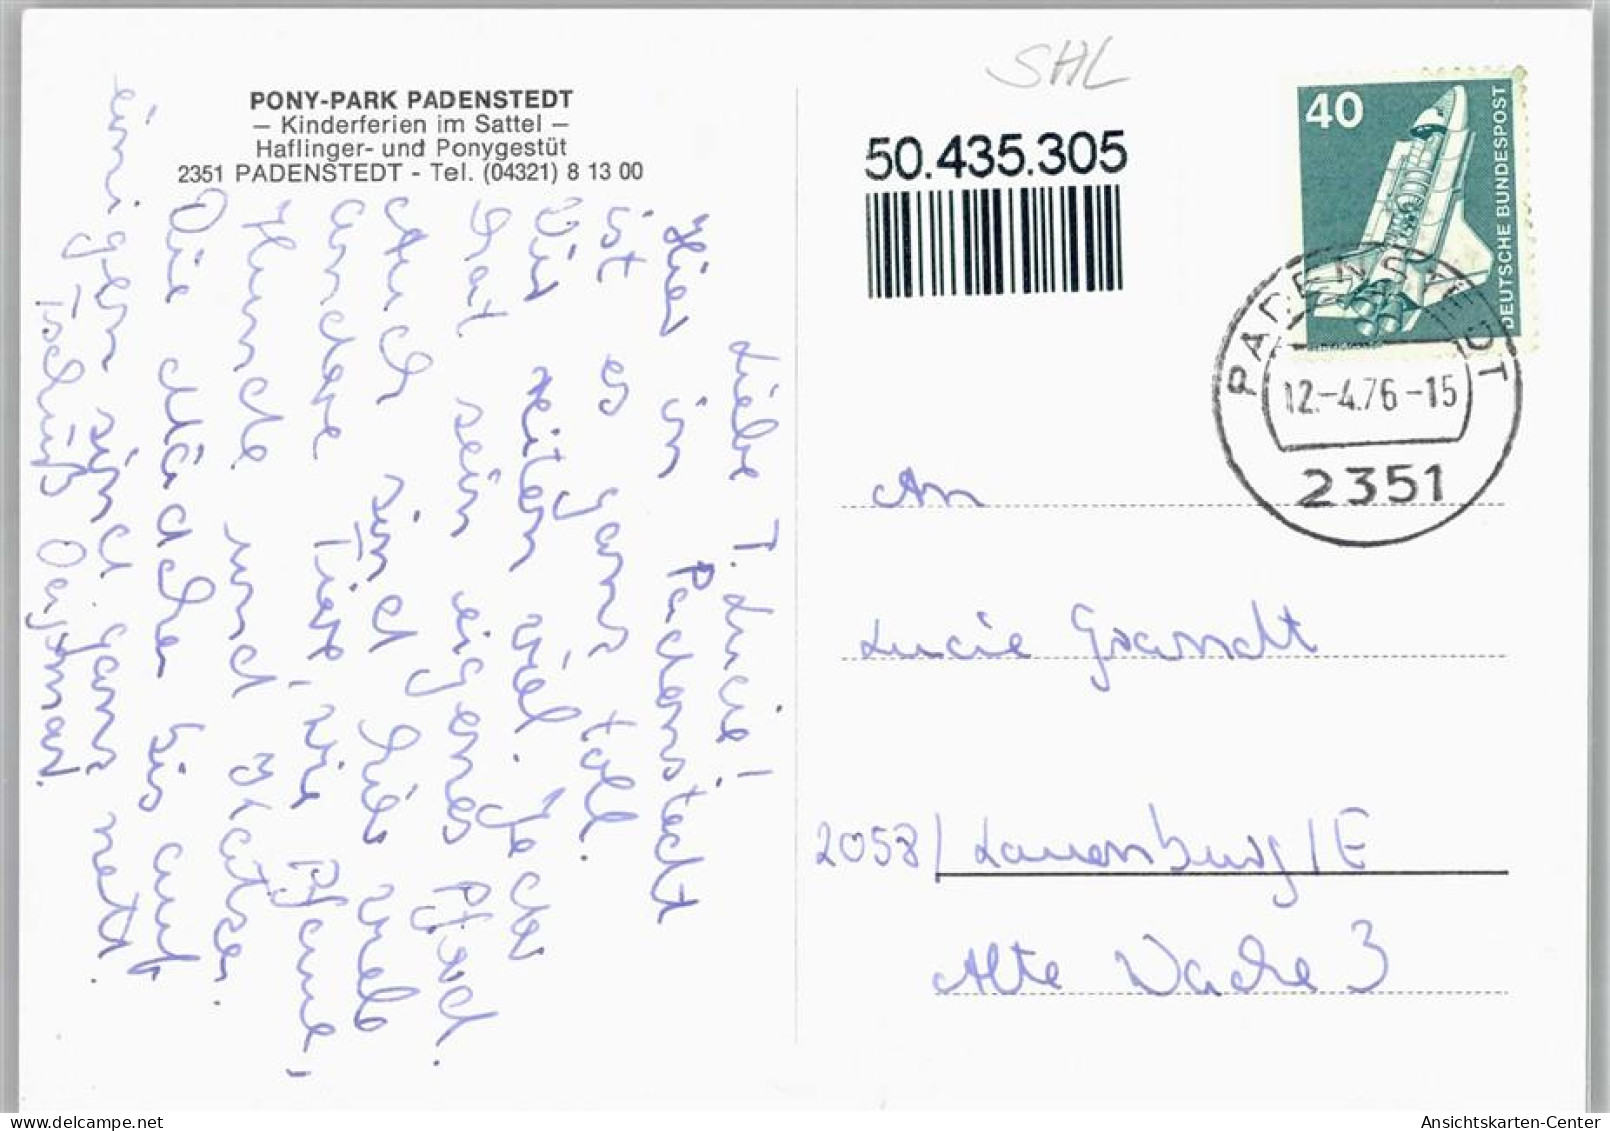 PONY-PARK PADENSTEDT
– Kinderferien im Sattel –
Haflinger- und Ponygestüt
2351 PADENSTEDT - Tel. (04321) 8 13 00
Liebe T. Lucie!
Hier in Padenstedt
ist es ganz toll.
Wir reiten viel. Jeder
hat sein eigenes Pferd.
Auch sind hier viele
andere Tiere, wie Pfaue,
Hunde und Katzen.
Die Mädchen bis auf
einigen sind ganz nett.
Tschüß Dagmar.
SHL
50.435.305
40
DEUTSCHE BUNDESPOST
PADENSTEDT
12.-4.76-15
2351
An
Lucie Grandt
2058/Lauenburg/E
Alte Wache 3
Ansichtskarten-Center